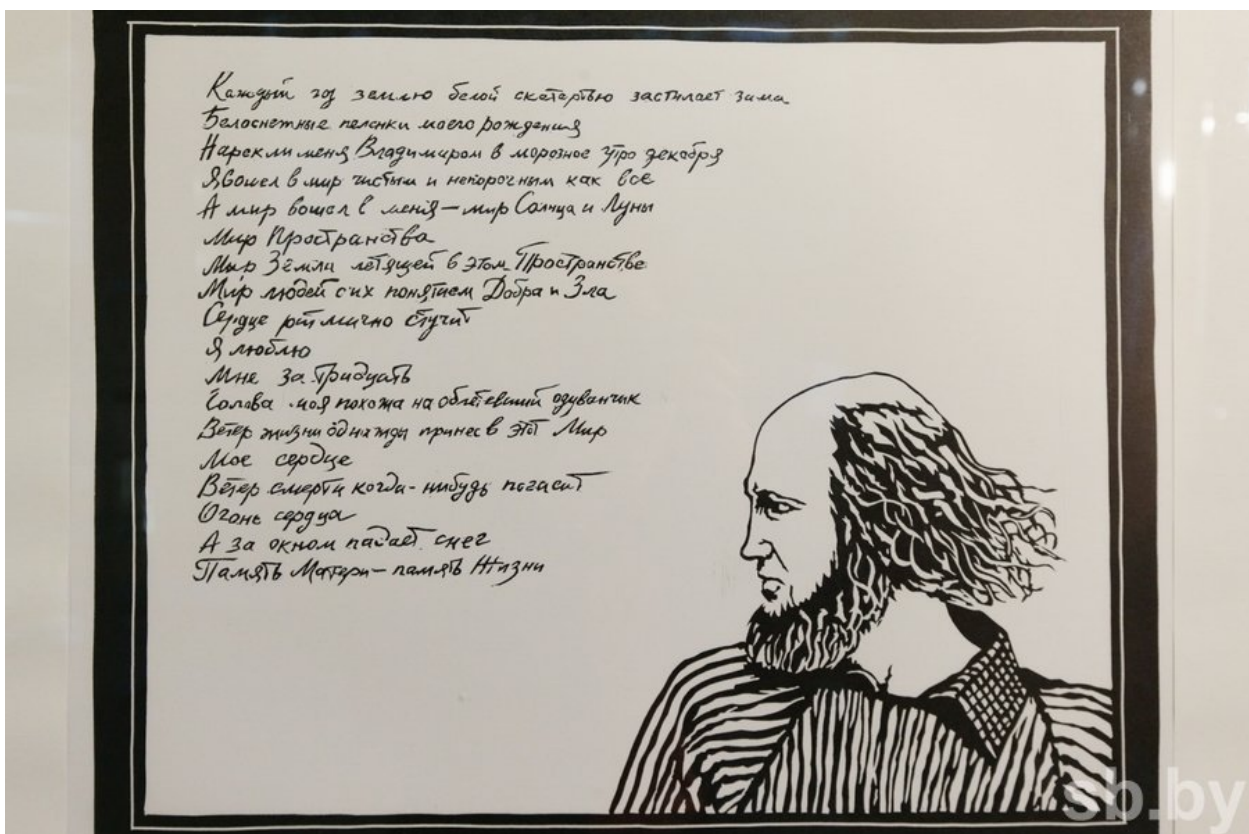 Каждый год землю белой скатертью застилает зима
Белоснежные пеленки моего рождения
Нарекли меня Владимиром в морозное утро декабря
Я вошел в мир чистым и непорочным как все
А мир вошел в меня — мир Солнца и Луны
Мир Пространства
Мир Земли летящей в этом Пространстве
Мир людей с их понятием Добра и Зла
Сердце ритмично стучит
Я люблю
Мне за тридцать
Голова моя похожа на облетевший одуванчик
Ветер жизни однажды принес в этот Мир
Мое сердце
Ветер смерти когда-нибудь погасит
Огонь сердца
А за окном падает снег
Память Матери — память Жизни
sb.by